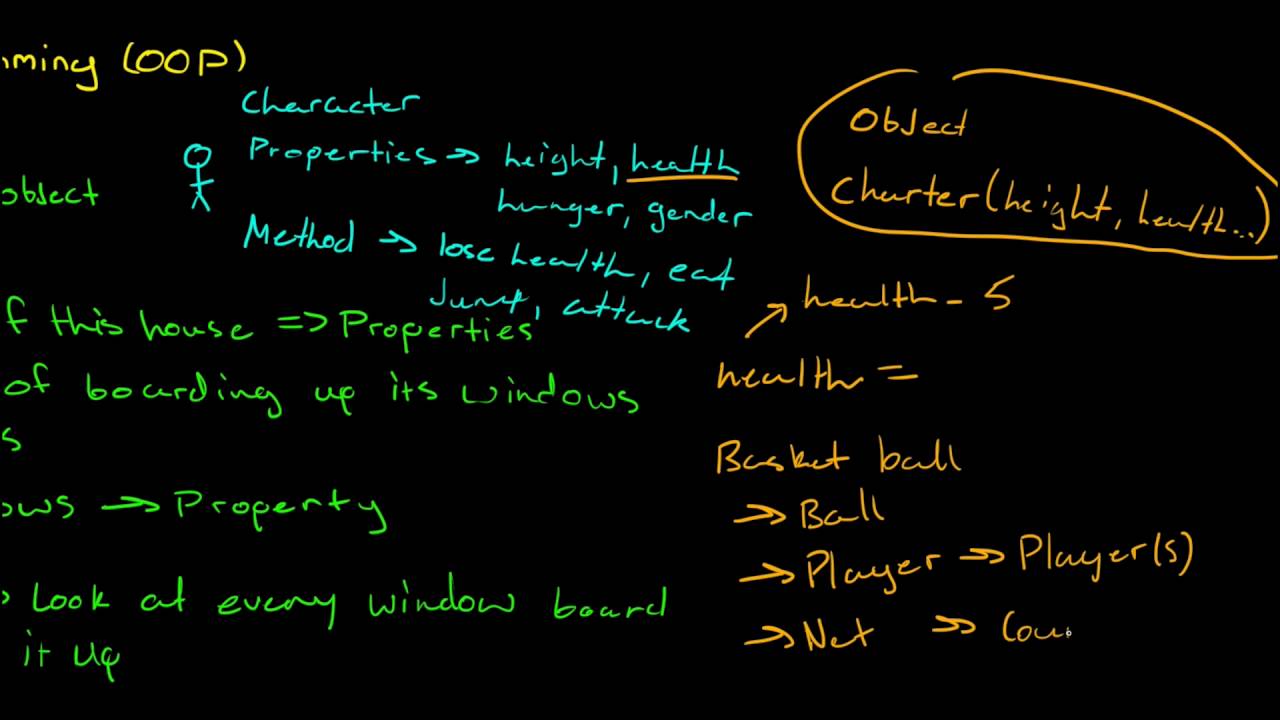 mming (OOP)
Character
Properties → height, health
hunger, gender
Method → lose health, eat
Jump, attack
object
f this house => Properties
of boarding up its windows
s
ows → Property
> Look at every window board
it up
Object
Charter(height, health...)
health - 5
health =
Basket ball
→ Ball
→ Player → Player(s)
→ Net → Cou